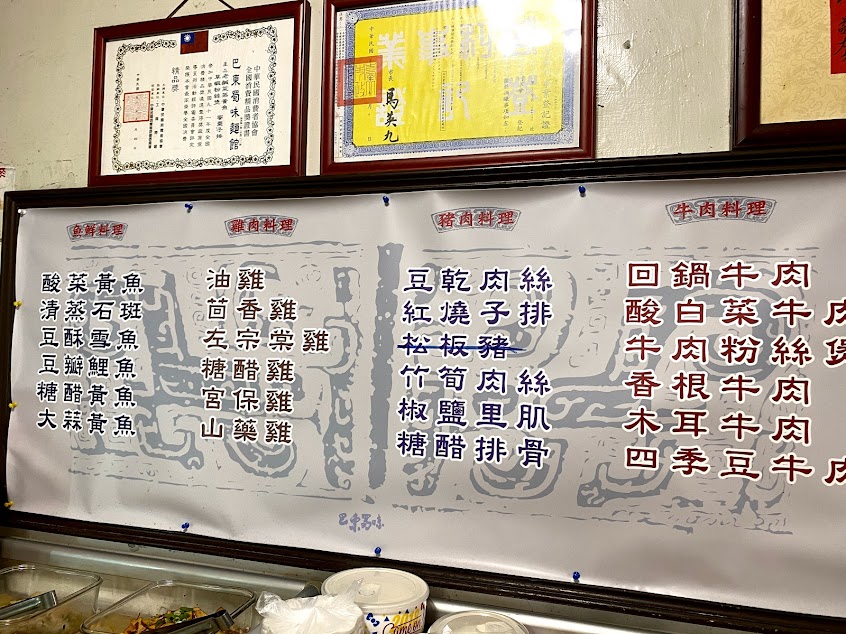 中華民國消費者協會
全國消費精品獎證書
巴東蜀味麵館
精品獎
馬英九
魚鮮料理
酸菜黃魚
清蒸石斑
豆酥雪魚
豆瓣鯉魚
糖醋黃魚
大蒜黃魚
雞肉料理
油雞
茴香雞
左宗棠雞
糖醋雞
宮保雞
山藥雞
豬肉料理
豆乾肉絲
紅燒子排
松板豬
竹筍肉絲
椒鹽里肌
糖醋排骨
牛肉料理
回鍋牛肉
酸白菜牛肉
牛肉粉絲煲
香根牛肉
木耳牛肉
四季豆牛肉
巴東蜀味